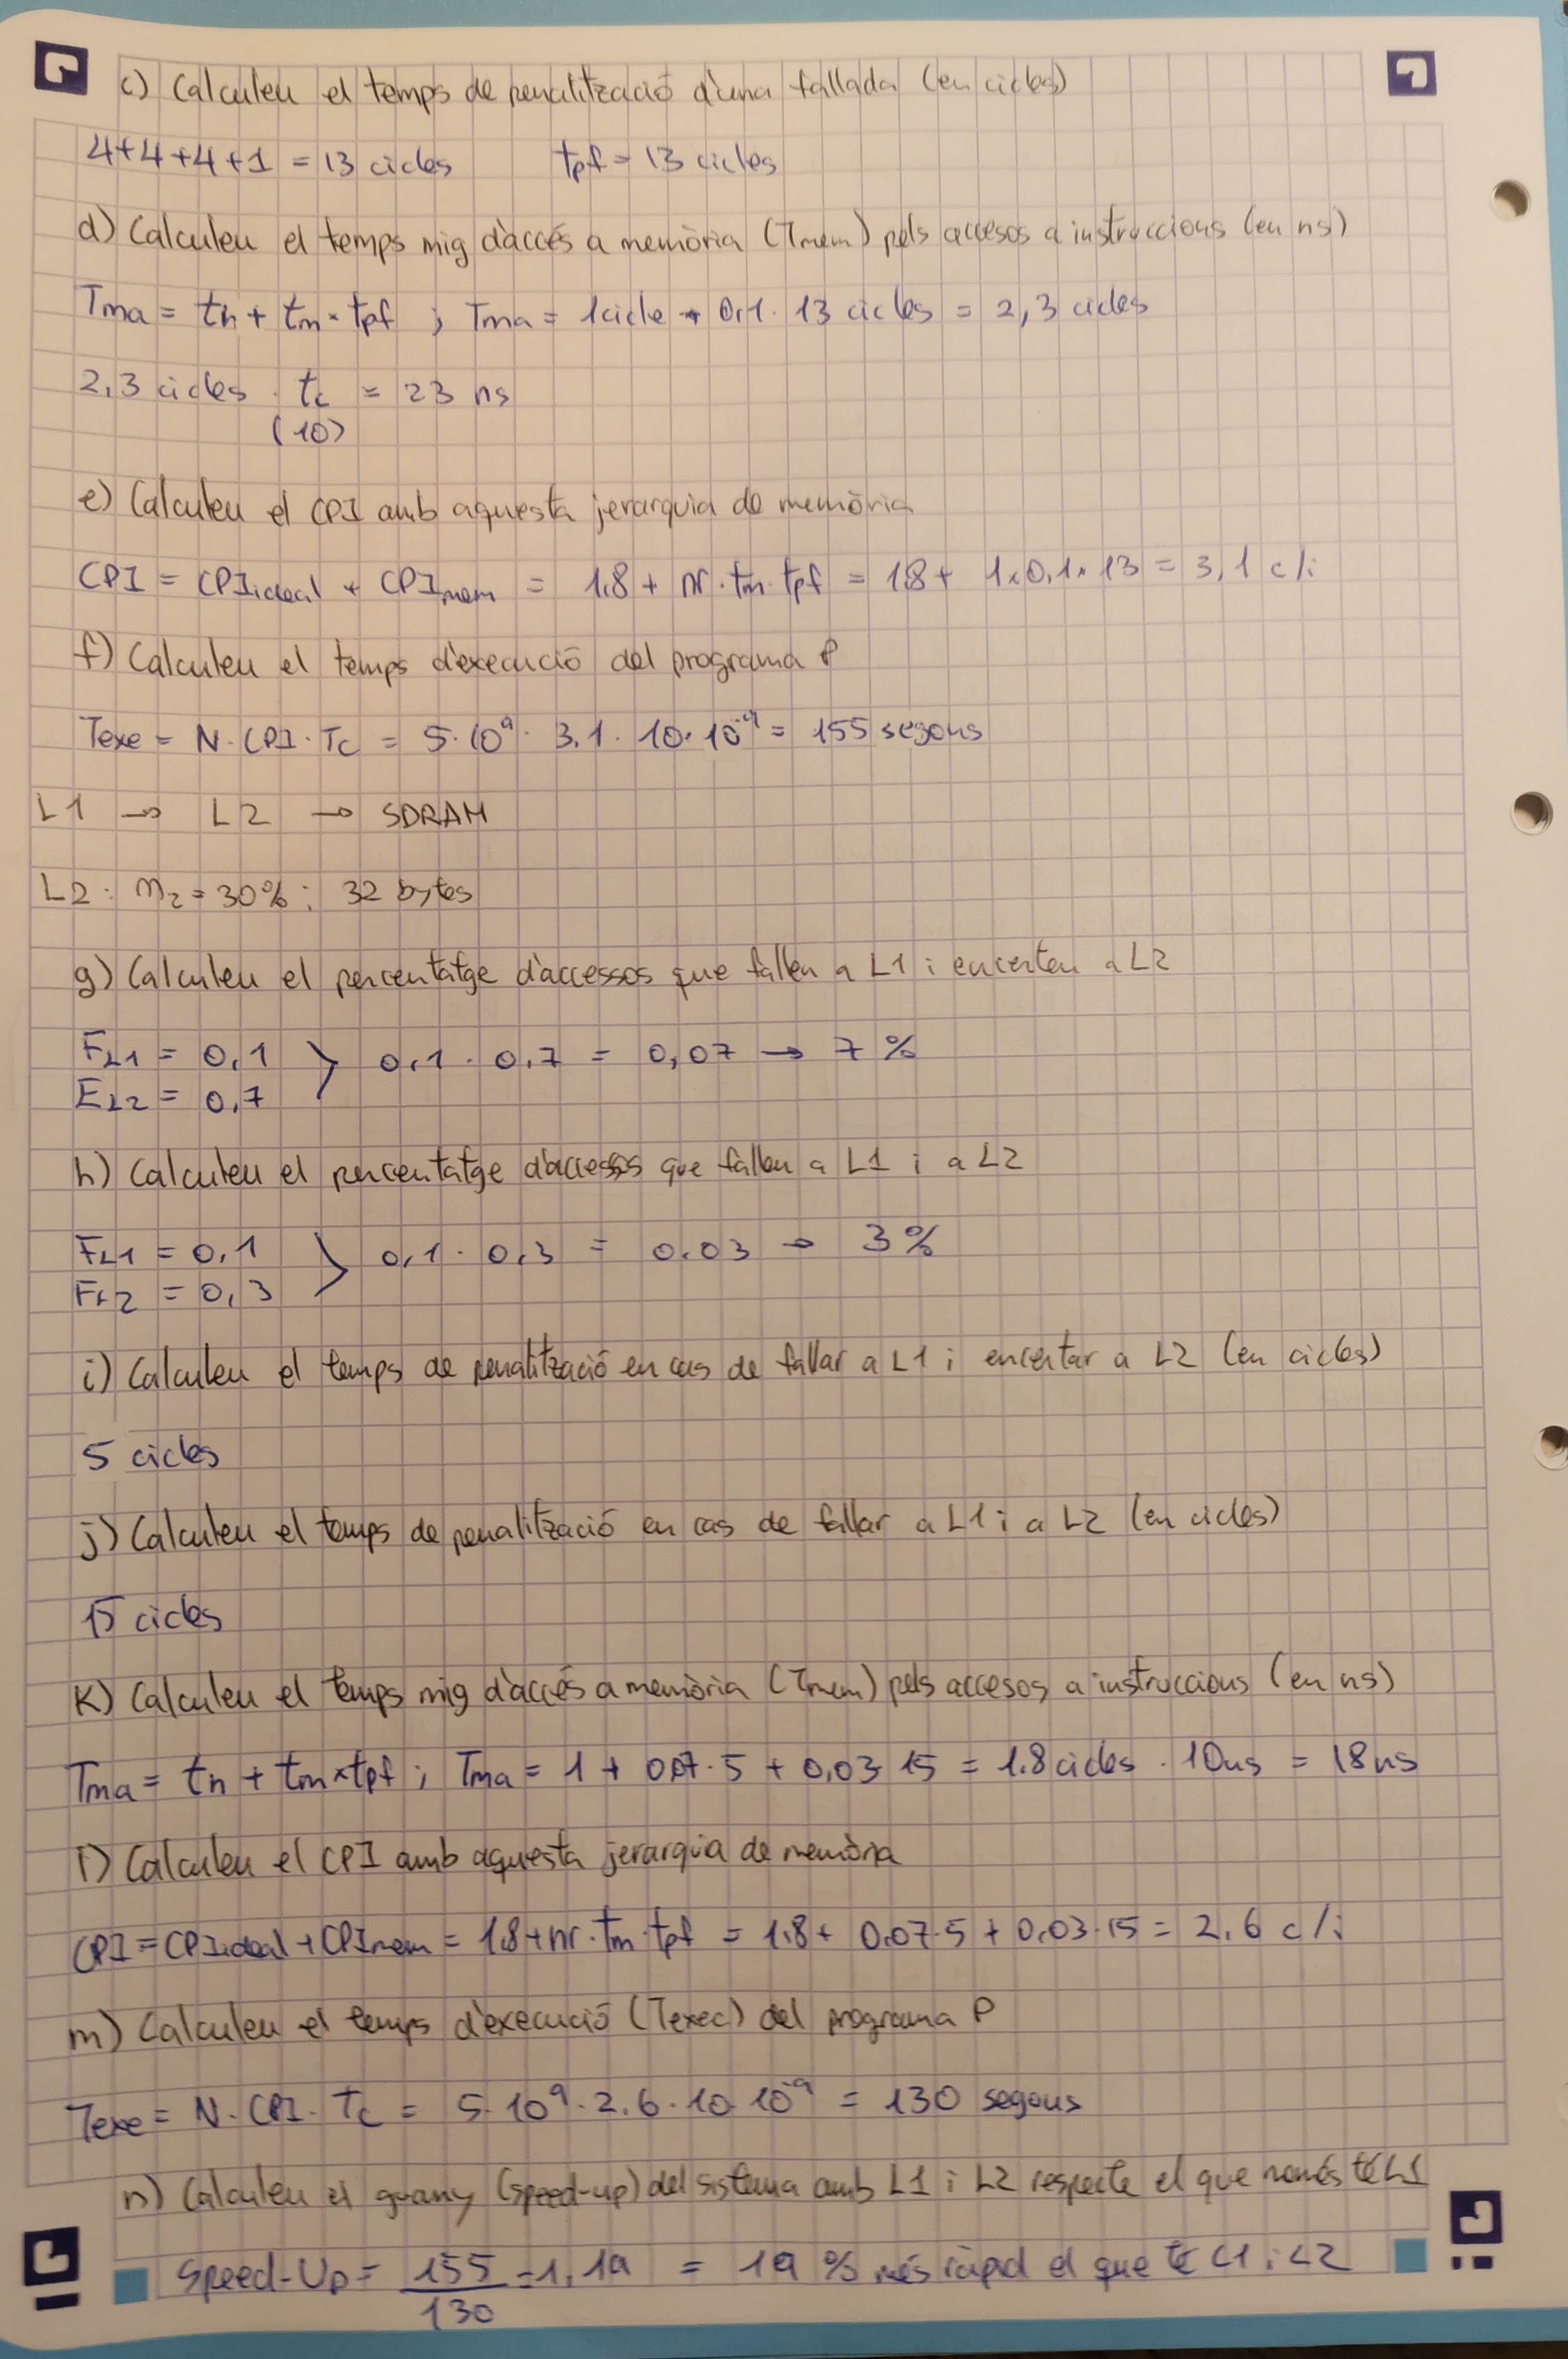 c) Calculeu el temps de penalització d'una fallada (en cicles)
4+4+4+1 = 13 cicles tpf = 13 cicles
d) Calculeu el temps mig d'accés a memòria (Tmem) pels accesos a instruccions (en ns)
Tma = th + tm × tpf ; Tma = 1 cicle + 0,1 · 13 cicles = 2,3 cicles
2,3 cicles · tc = 23 ns
(10)
e) Calculeu el CPI amb aquesta jerarquia de memòria
CPI = CPIideal + CPImem = 1.8 + nr · tm · tpf = 1.8 + 1×0,1×13 = 3,1 c/i
f) Calculeu el temps d'execució del programa P
Texe = N · CPI · Tc = 5·10⁹ · 3.1 · 10·10⁻⁹ = 155 segons
L1 → L2 → SDRAM
L2 : m₂ = 30% ; 32 bytes
g) Calculeu el percentatge d'accessos que fallen a L1 i encerten a L2
FL1 = 0,1 > 0,1 · 0,7 = 0,07 → 7 %
EL2 = 0,7
h) Calculeu el percentatge d'accessos que fallen a L1 i a L2
FL1 = 0,1 > 0,1 · 0,3 = 0.03 → 3%
FL2 = 0,3
i) Calculeu el temps de penalització en cas de fallar a L1 i encertar a L2 (en cicles)
5 cicles
j) Calculeu el temps de penalització en cas de fallar a L1 i a L2 (en cicles)
15 cicles
K) Calculeu el temps mig d'accés a memòria (Tmem) pels accesos a instruccions (en ns)
Tma = th + tm × tpf ; Tma = 1 + 0,07 · 5 + 0,03 · 15 = 1.8 cicles · 10ns = 18ns
l) Calculeu el CPI amb aquesta jerarquia de memòria
CPI = CPIideal + CPImem = 1.8 + nr · tm · tpf = 1.8 + 0.07·5 + 0,03·15 = 2,6 c/i
m) Calculeu el temps d'execució (Texec) del programa P
Texe = N · CPI · Tc = 5·10⁹ · 2.6 · 10·10⁻⁹ = 130 segons
n) Calculeu el guany (speed-up) del sistema amb L1 i L2 respecte el que només té L1
Speed-Up = 155/130 = 1,19 = 19 % més ràpid el que té L1 i L2